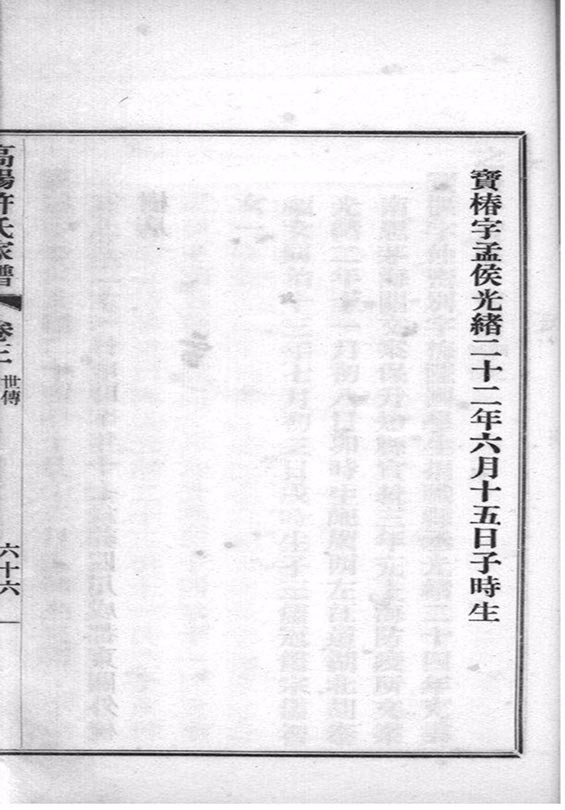 寶椿字孟侯光緒二十二年六月十五日子時生
高陽許氏家譜
卷三
世傳
六十六